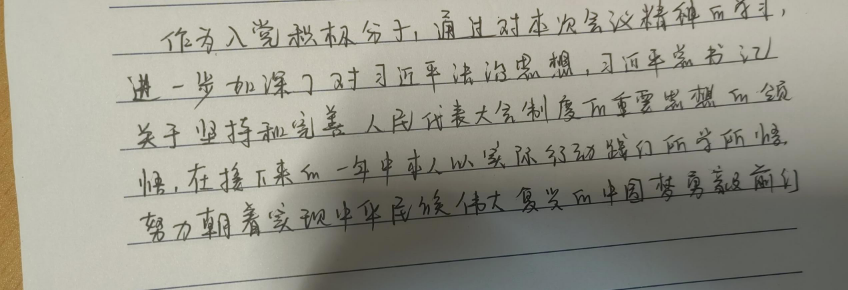 作为入党积极分子,通过对本次会议精神的学习,
进一步加深了对习近平法治思想,习近平总书记
关于坚持和完善人民代表大会制度的重要思想的领
悟,在接下来的一年中本人以实际行动践行所学所悟,
努力朝着实现中华民族伟大复兴的中国梦勇毅前行